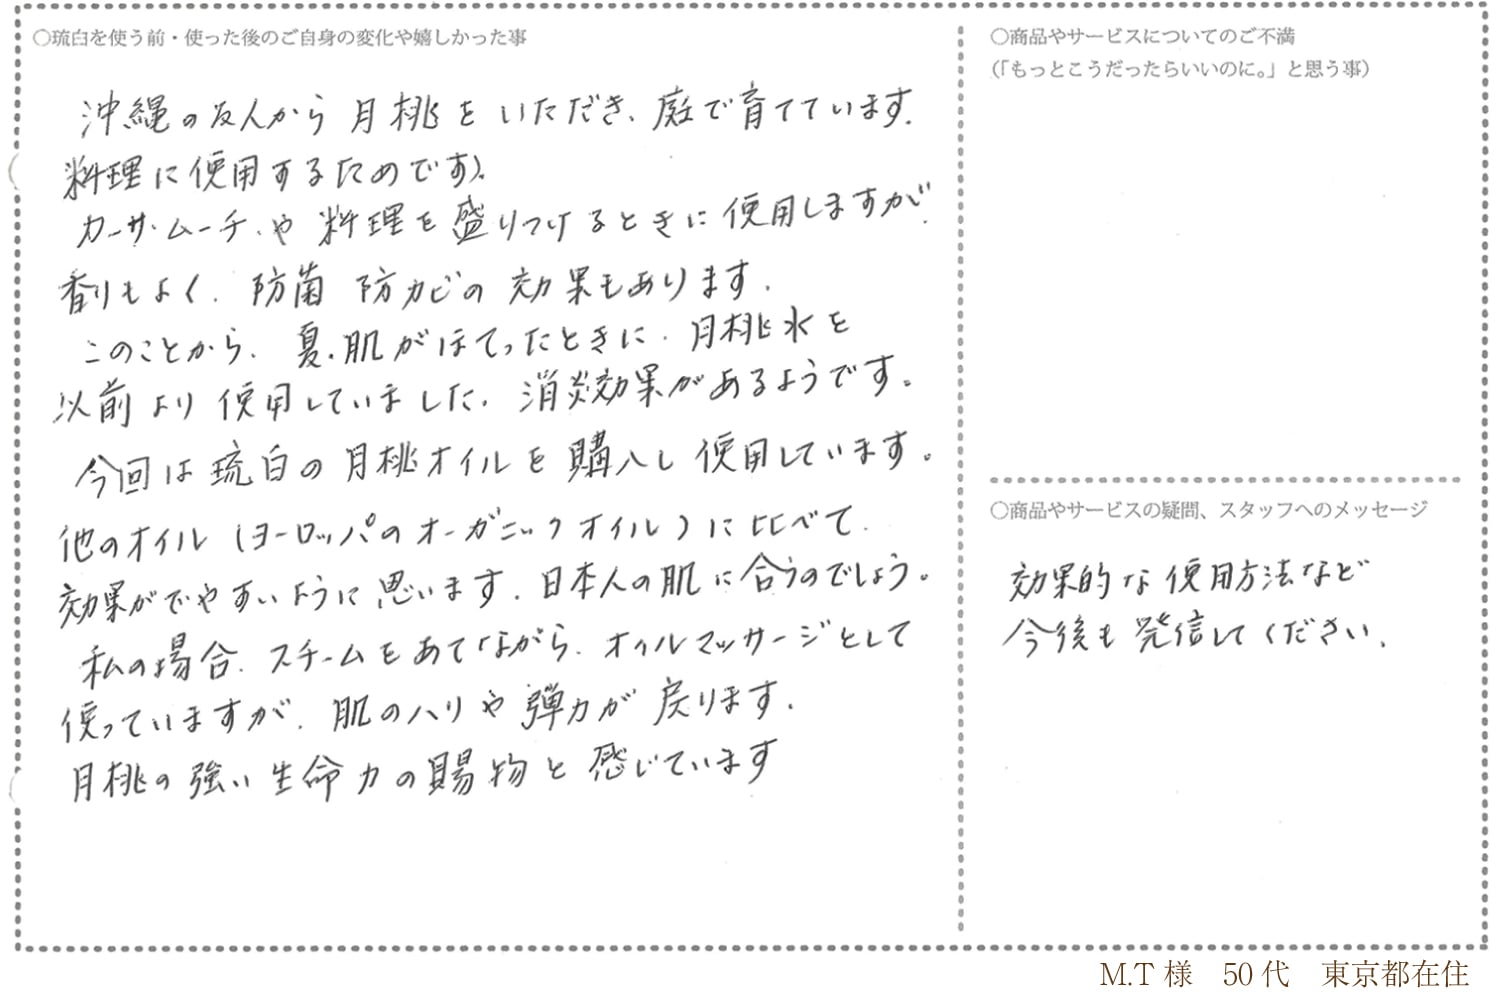 ○琉白を使う前・使った後のご自身の変化や嬉しかった事
沖縄の友人から月桃をいただき、庭で育てています.
料理に使用するためです。
カーサ・ムーチーや料理を盛りつけるときに使用しますが.
香りもよく. 防菌 防カビの効果もあります.
このことから. 夏.肌がほてったときに.月桃水を
以前より使用していました. 消炎効果があるようです。
今回は琉白の月桃オイルを購入し使用しています。
他のオイル(ヨーロッパのオーガニックオイル)に比べて.
効果がでやすいように思います. 日本人の肌に合うのでしょう。
私の場合. スチームをあてながら. オイルマッサージとして
使っていますが. 肌のハリや弾力が戻ります.
月桃の強い生命力の賜物と感じています
○商品やサービスについてのご不満
(「もっとこうだったらいいのに。」と思う事)
○商品やサービスの疑問、スタッフへのメッセージ
効果的な使用方法など
今後も発信してください.
M.T 様 50代 東京都在住